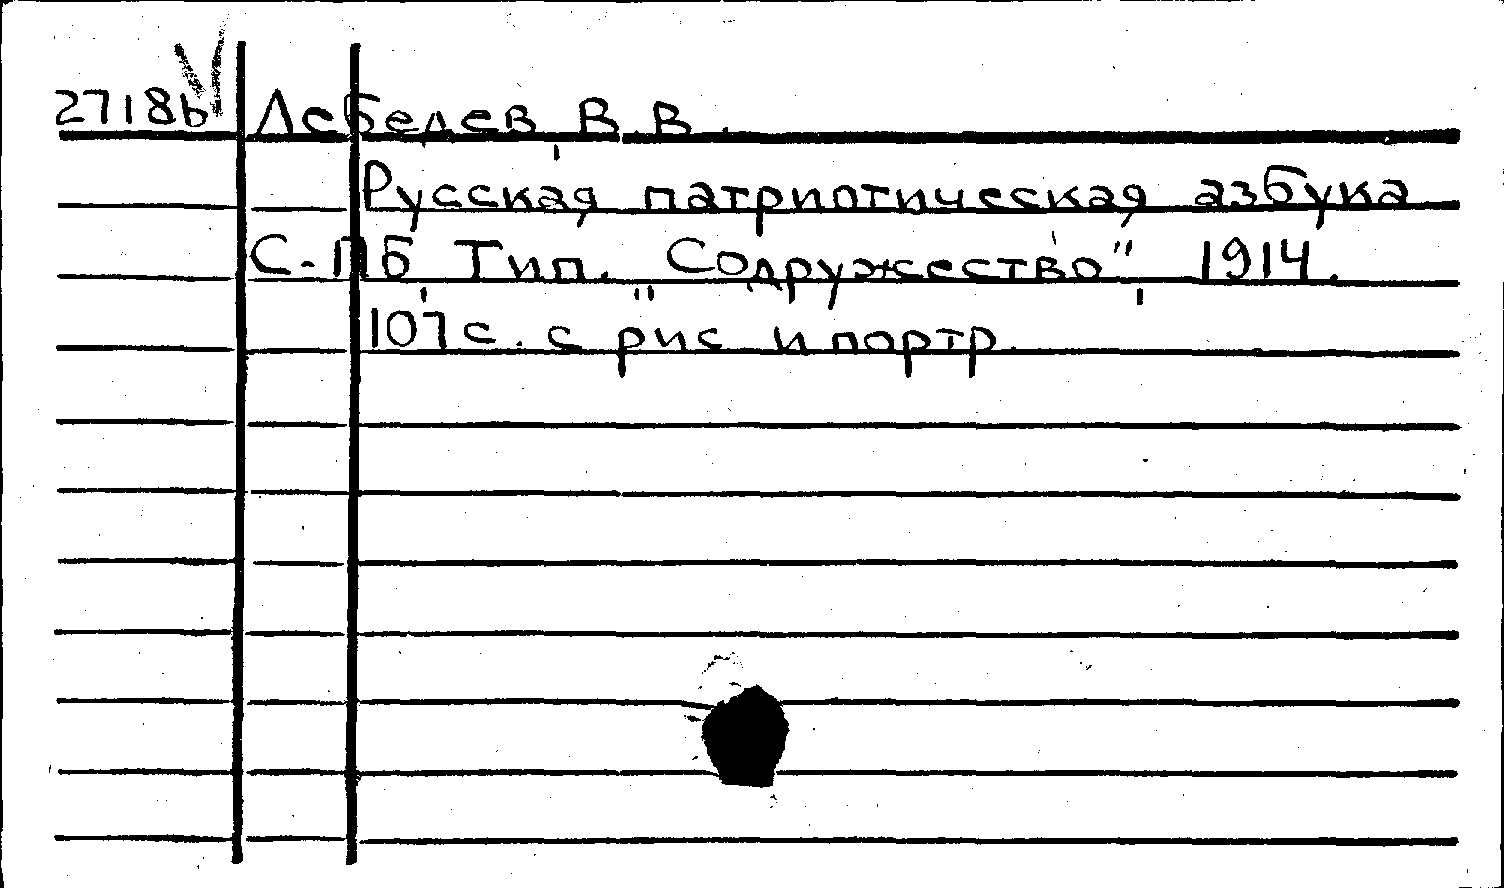 2718б Лебедев, В.В.
Русская патриотическая азбука
С-ПБ, Тип. "Содружество", 1914.
107 с. с рис и портр.